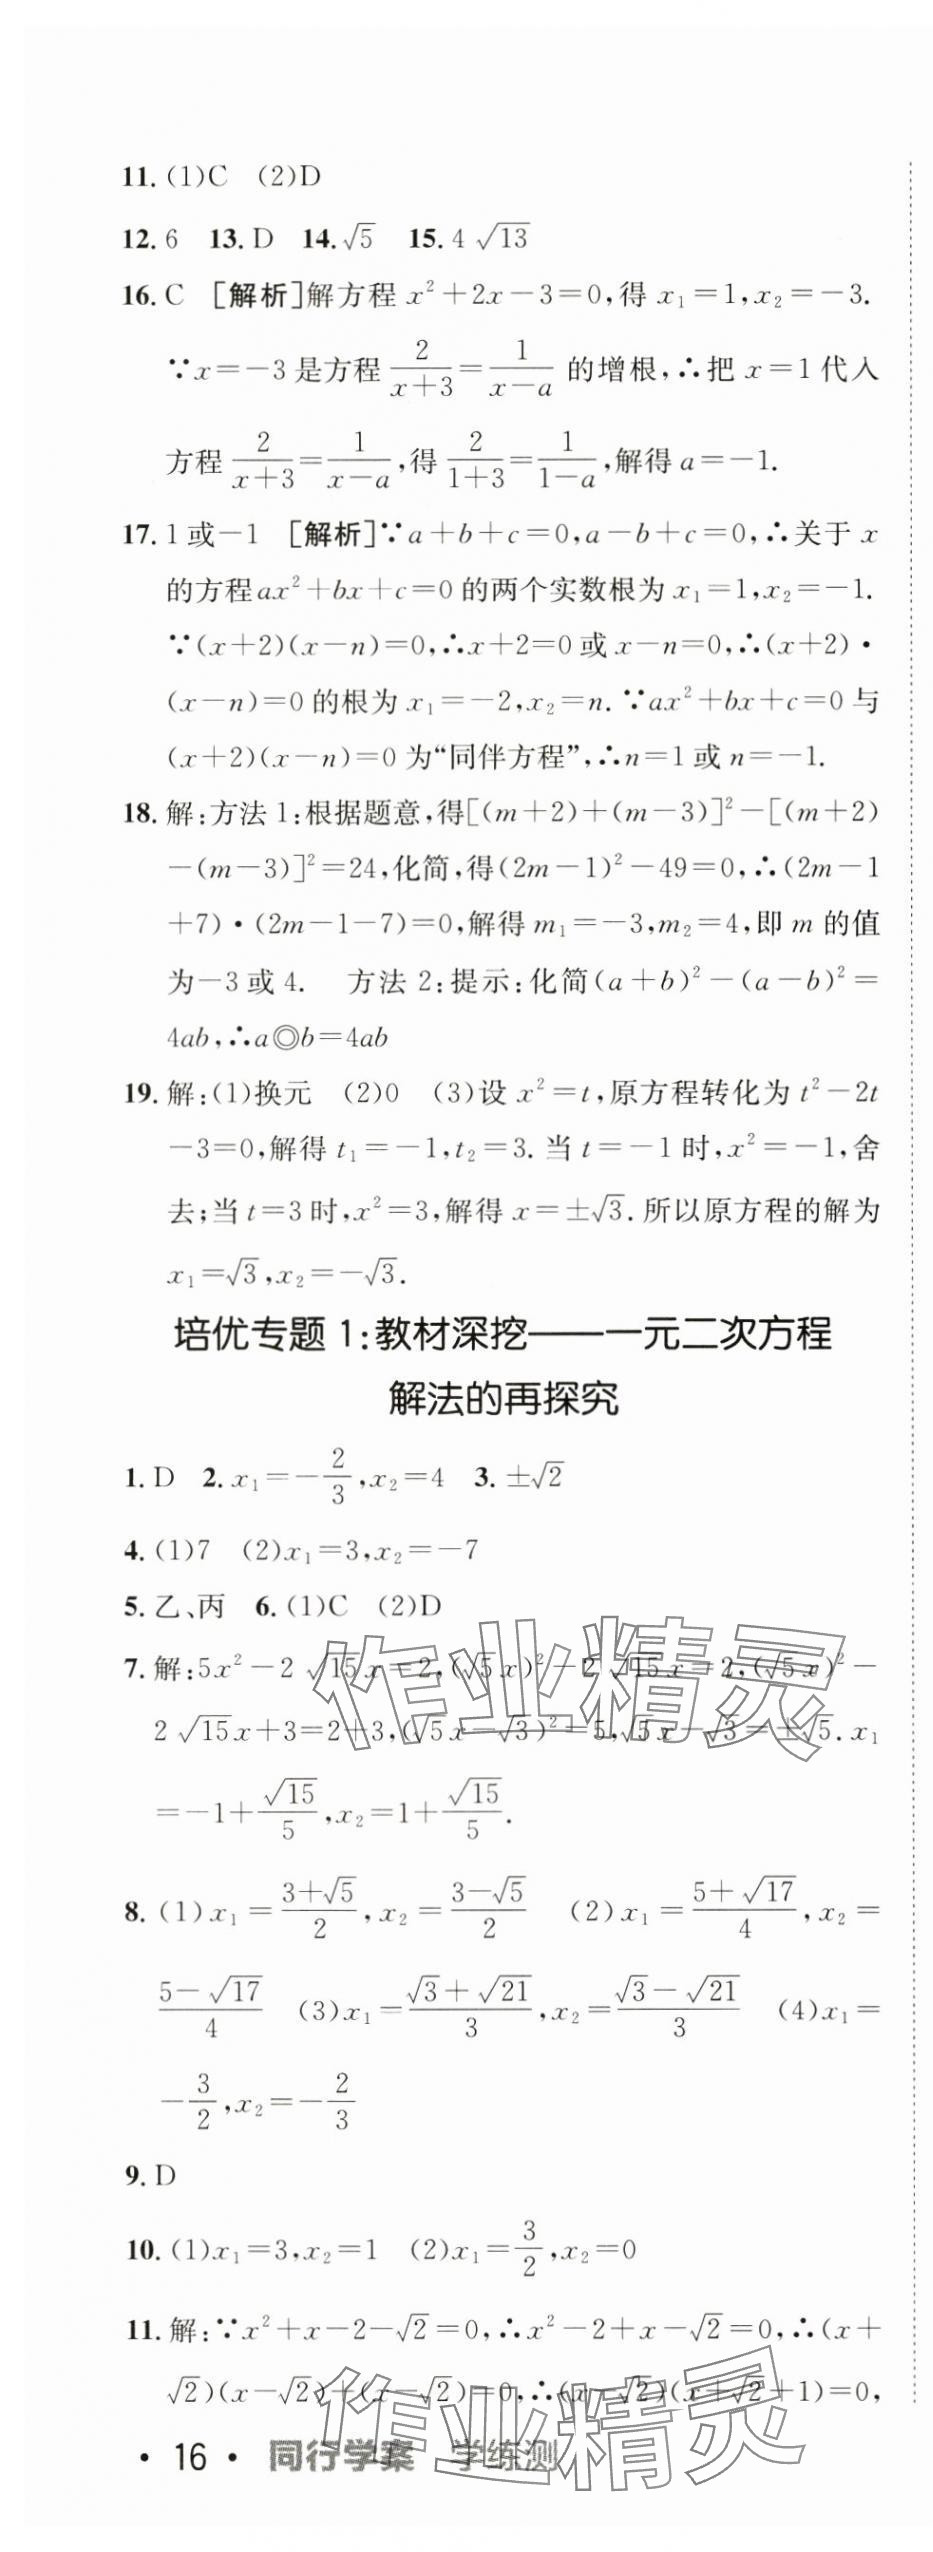 11. (1)C (2)D
12. 6 13. D 14. √5 15. 4 √13
16. C [解析]解方程 x²+2x-3=0,得 x₁=1,x₂=-3.
∵x=-3是方程 2/(x+3)=1/(x-a) 的增根,∴把 x=1代入
方程 2/(x+3)=1/(x-a),得 2/(1+3)=1/(1-a),解得 a=-1.
17. 1或-1 [解析]∵a+b+c=0,a-b+c=0,∴关于 x
的方程ax²+bx+c=0的两个实数根为 x₁=1,x₂=-1.
∵(x+2)(x-n)=0,∴x+2=0或x-n=0,∴(x+2)·
(x-n)=0的根为 x₁=-2,x₂=n.∵ax²+bx+c=0与
(x+2)(x-n)=0为“同伴方程”,∴n=1或n=-1.
18. 解:方法1:根据题意,得[(m+2)+(m-3)]²-[(m+2)
-(m-3)]²=24,化简,得(2m-1)²-49=0,∴(2m-1
+7)·(2m-1-7)=0,解得m₁=-3,m₂=4,即m的值
为-3或4. 方法2:提示:化简(a+b)²-(a-b)²=
4ab,∴a◎b=4ab
19. 解:(1)换元 (2)0 (3)设 x²=t,原方程转化为 t²-2t
-3=0,解得 t₁=-1,t₂=3.当 t=-1时,x²=-1,舍
去;当t=3时,x²=3,解得 x=±√3.所以原方程的解为
x₁=√3,x₂=-√3.
培优专题1:教材深挖——一元二次方程
解法的再探究
1. D 2. x₁=-2/3,x₂=4 3. ±√2
4. (1)7 (2)x₁=3,x₂=-7
5. 乙、丙 6. (1)C (2)D
7. 解:5x²-2 √15x=2,(√5x)²-2 √15x=2,(√5x)²-
2 √15x+3=2+3,(√5x-√3)²=5,√5x-√3=±√5.x₁
=-1+√15/5,x₂=1+√15/5.
8. (1)x₁=(3+√5)/2,x₂=(3-√5)/2 (2)x₁=(5+√17)/4,x₂=
(5-√17)/4 (3)x₁=(√3+√21)/3,x₂=(√3-√21)/3 (4)x₁=
-3/2,x₂=-2/3
9. D
10. (1)x₁=3,x₂=1 (2)x₁=3/2,x₂=0
11. 解:∵x²+x-2-√2=0,∴x²-2+x-√2=0,∴(x+
√2)(x-√2)+(x-√2)=0,∴(x-√2)(x+√2+1)=0,
· 16 · 同行学案 学练测
作业精灵
作业精灵